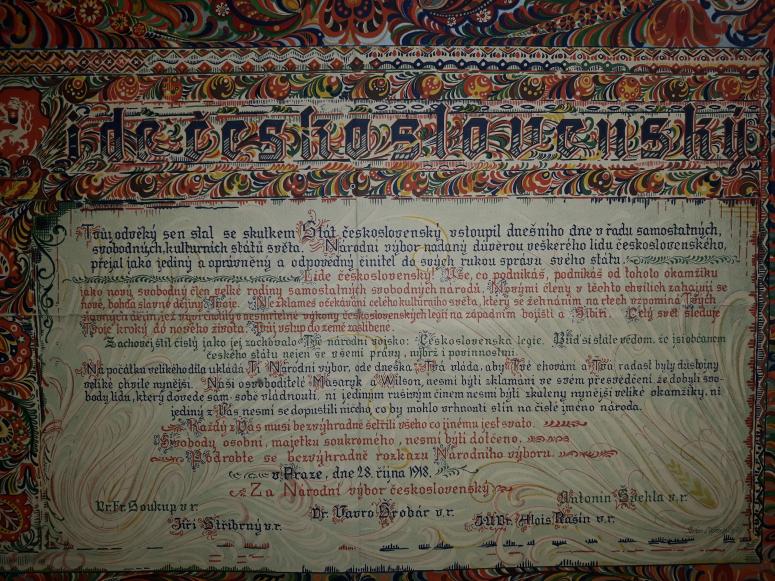 lide československý
Tvůj odvěký sen stal se skutkem Stát československý vstoupil dnešního dne v řadu samostatných,
svobodných, kulturních států světa. Národní výbor nadaný důvěrou veškerého lidu československého,
přejal jako jediný a oprávněný a odpovědný činitel do svých rukou správu svého státu.
Lide československý! Vše, co podnikáš, podnikáš od tohoto okamžiku
jako nový svobodný člen velké rodiny samostatných svobodných národů. Novými činy v těchto chvílích zahajují se
nové, bohdá slavné dějiny Tvoje. Nezklameš očekávání celého kulturního světa, který se žehnáním na rtech vzpomíná Tvých
slavných dějin, jež vyvrcholily v nesmrtelné výkony československých legií na západním bojišti a Sibiři. Celý svět sleduje
Tvoje kroky do nového života, Tvůj vstup do země zaslíbené.
Zachovej štít čistý jako jej zachovalo Tvé národní vojsko: Československá legie. Buď si stále vědom, že jsi občanem
československého státu nejen se všemi právy, nýbrž i povinnostmi.
Na počátku velikého díla ukládá Ti Národní výbor, ode dneška Tvá vláda, aby Tvé chování a Tvá radost byly důstojny
veliké chvíle nynější. Naši osvoboditelé Masaryk a Wilson, nesmí býti zklamáni ve svém přesvědčení že dobyli svo-
body lidu, který dovede sám sobě vládnouti. ni jediným rušivým činem nesmí býti zkaleny nynější veliké okamžiky, ni
jediný z Vás nesmí se dopustiti ničeho, co by mohlo vrhnouti stín na čisté jméno národa.
Každý z Vás musí bezvýhradně šetřiti všeho co jinému jest svato.
Svobody osobní, majetku soukromého, nesmí býti dotčeno.
Podrobte se bezvýhradně rozkazu Národního výboru.
v Praze, dne 28. října 1918.
Za Národní výbor československý
Dr. Fr. Soukup v. r. Antonín Švehla v. r.
Jiří Stříbrný v. r. Dr. Vavro Šrobár v. r. JUDr. Alois Rašín v. r.